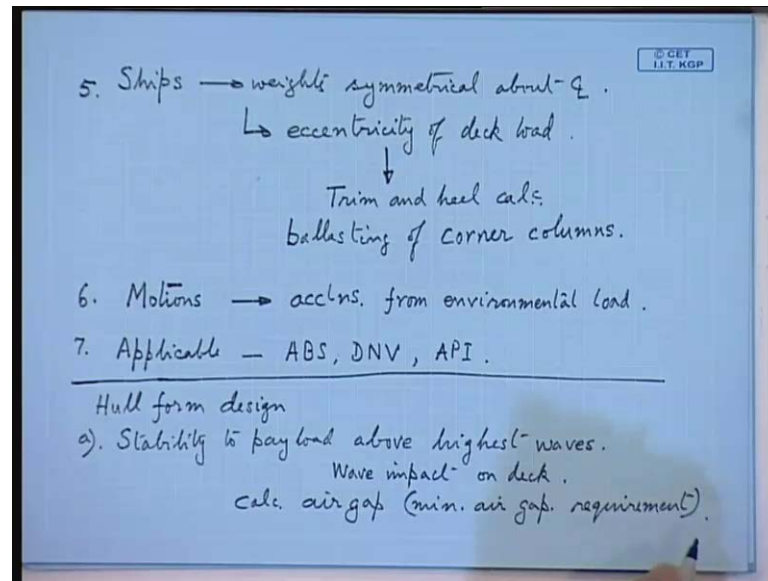 © CET
I.I.T. KGP
5. Ships → weights symmetrical about ℄.
↳ eccentricity of deck load.
↓
Trim and heel calc.
ballasting of corner columns.
6. Motions → acclns. from environmental load.
7. Applicable — ABS, DNV, API.
Hull form design
a). Stability to payload above highest waves.
Wave impact on deck.
calc. air gap (min. air gap. requirement).